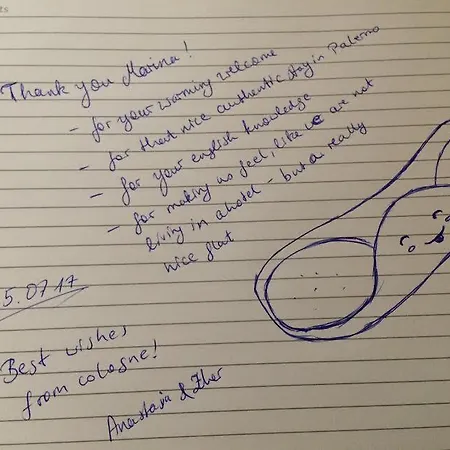 Thank you Marina!
- for your warming welcome
- for that nice authentic stay in Palermo
- for your english knowledge
- for making us feel, like we are not
living in a hotel - but a really
nice flat
5.07.17
Best wishes
from cologne!
Anastasia &